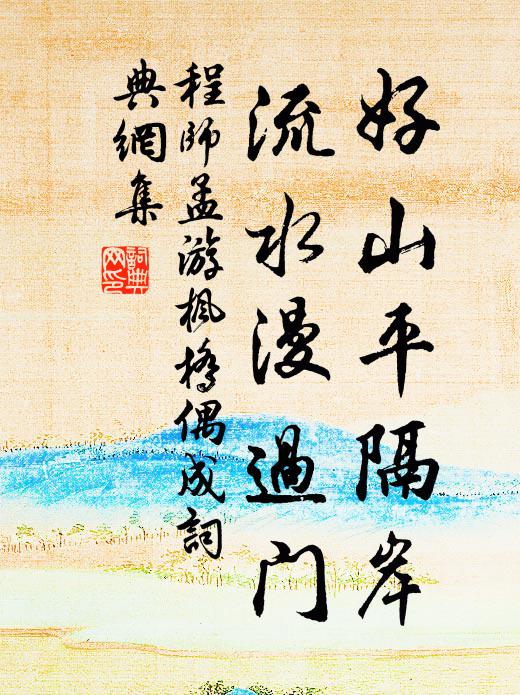 好山平隔岸
流水漫過门
程師孟游楓橋偶成詞
典網集
詞典
网印